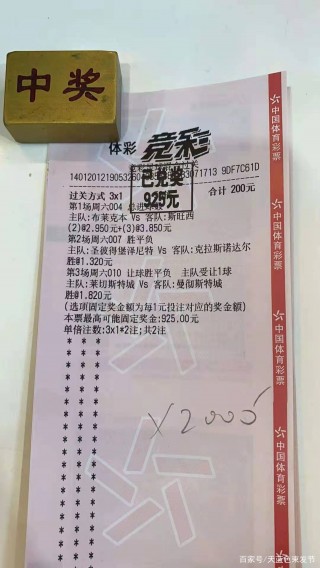 中奖
体彩 竞彩
已兑奖
925元
过关方式 3x1 合计 200元
第1场周六004 总进球数
主队:布莱克本 Vs 客队:斯旺西
(2)@2.950元+(3)@3.850元
第2场周六007 胜平负
主队:圣彼得堡泽尼特 Vs 客队:克拉斯诺达尔
胜@1.320元
第3场周六010 让球胜平负 主队受让1球
主队:莱切斯特城 Vs 客队:曼彻斯特城
胜@1.820元
(选项固定奖金额为每1元投注对应的奖金额)
本票最高可能固定奖金:925.00元
单倍注数:3x1*2注;共2注
中国体育彩票
中国体育彩票
中国体育彩票
中国体育彩票
百家号/天蓝色東发节